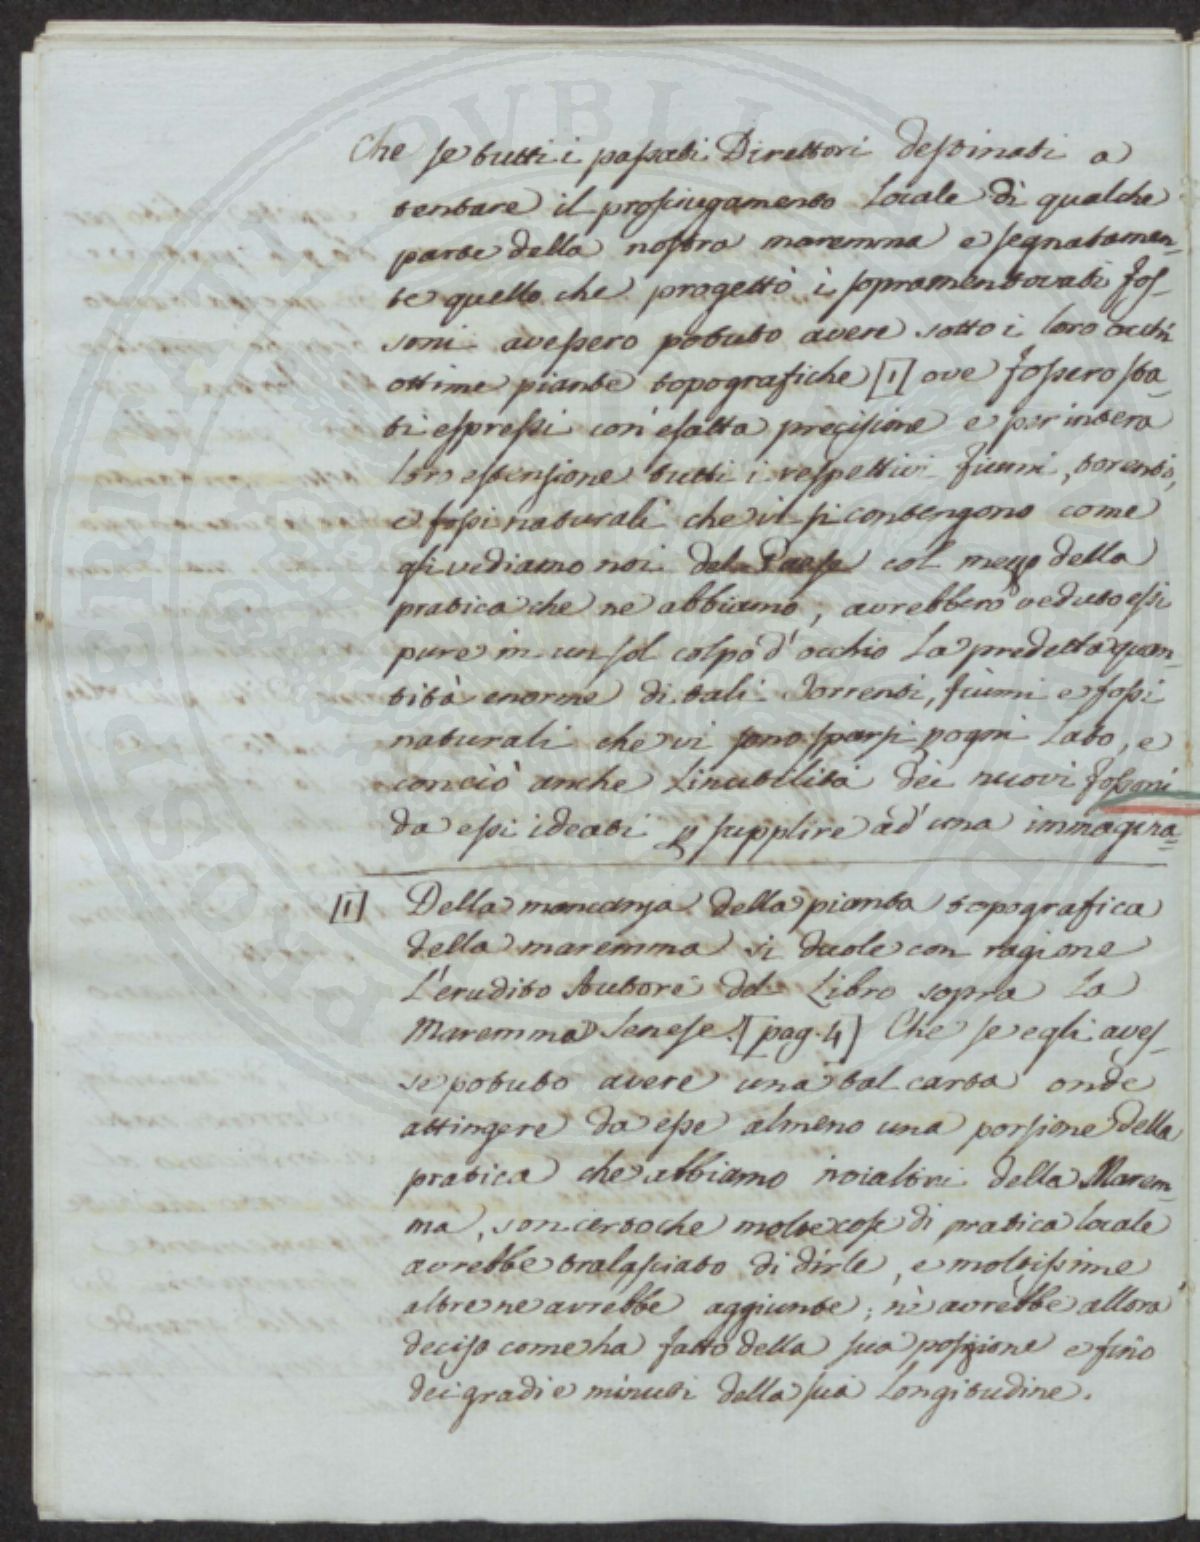 Che se tutti i passati Direttori destinati a
tentare il prosciugamento locale di qualche
parte della nostra maremma e segnatamen=
te quello che progettò i sopramentovati Fos-
soni avessero potuto avere sotto i loro occhi
ottime piante topografiche [1] ove fossero sta=
ti espressi con esatta precisione e per intera
loro estensione tutti i respettivi fiumi, torenti,
e fossi naturali che vi si contengono come
gli vediamo noi del Paese col mezzo della
pratica che ne abbiamo, avrebbero veduto essi
pure in un sol colpo d'occhio la predetta quan=
tità enorme di tali Torrenti, fiumi e fossi
naturali che vi sono sparsi p ogni lato, e
con ciò anche l'inutilità dei nuovi fossoni
da essi ideati p supplire ad una immagina=
[1] Della mancanza della pianta topografica
della maremma si duole con ragione
L'erudito Autore del Libro sopra la
Maremma Senese. [pag. 4] Che se egli aves-
se potuto avere una tal carta onde
attingere da esse almeno una porzione della
pratica che abbiamo noialtri della Marem=
ma, son certo che molte cose di pratica locale
avrebbe tralasciato di dirle, e moltissime
altre ne avrebbe aggiunte; nè avrebbe allora
deciso come ha fatto della sua posizione e fino
dei gradi e minuti della sua Longitudine.
PROSPERITATI PVBLICAE